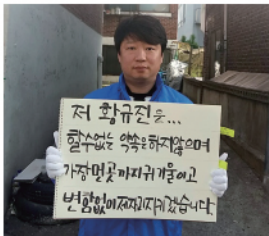 저 황규진은...
할수없는 약속은하지않으며
가장먼곳까지귀기울이고
변함없이제자리지키겠습니다.